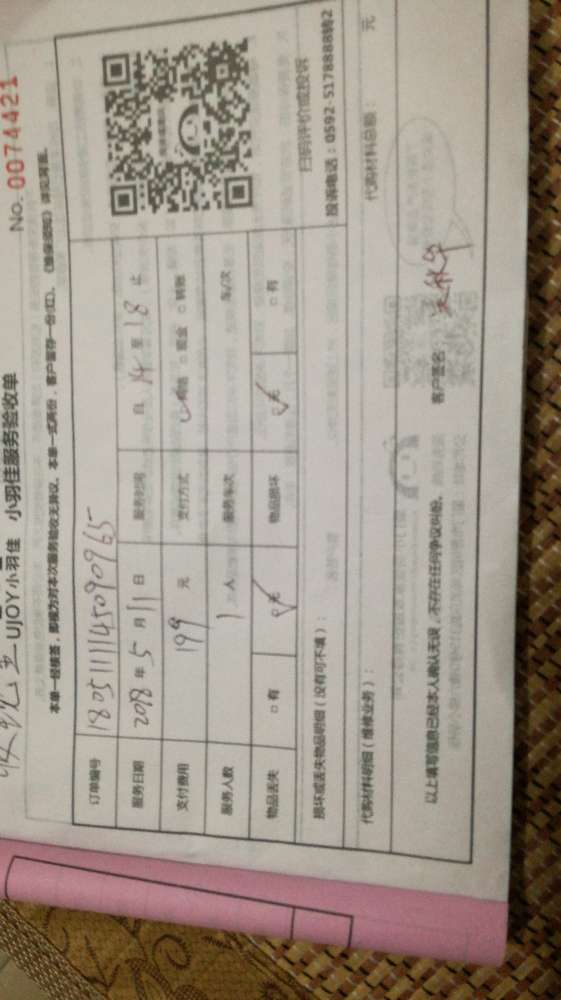 收现金
UJOY小羽佳 小羽佳服务验收单
No. 0074421
本单一经核签，即视为对本次服务验收无异议。本单一式两份，客户留存一份(红)。《维保须知》详见背面。
订单编号 1805111145090965
服务日期 2018年5月11日 服务时间 自 14 至 18 止
支付费用 199 元 支付方式 ☑网络 □现金 □转账
服务人数 1 人 服务车次 车/次
物品丢失 □有 ☑无 物品损坏 ☑无 □有
扫码评价或投诉
投诉电话：0592-5178888转2
损坏或丢失物品明细（没有可不填）：
代购材料明细（维修业务）： 代购材料总额： 元
以上填写信息已经本人确认无误，不存在任何争议纠纷。 客户签名：